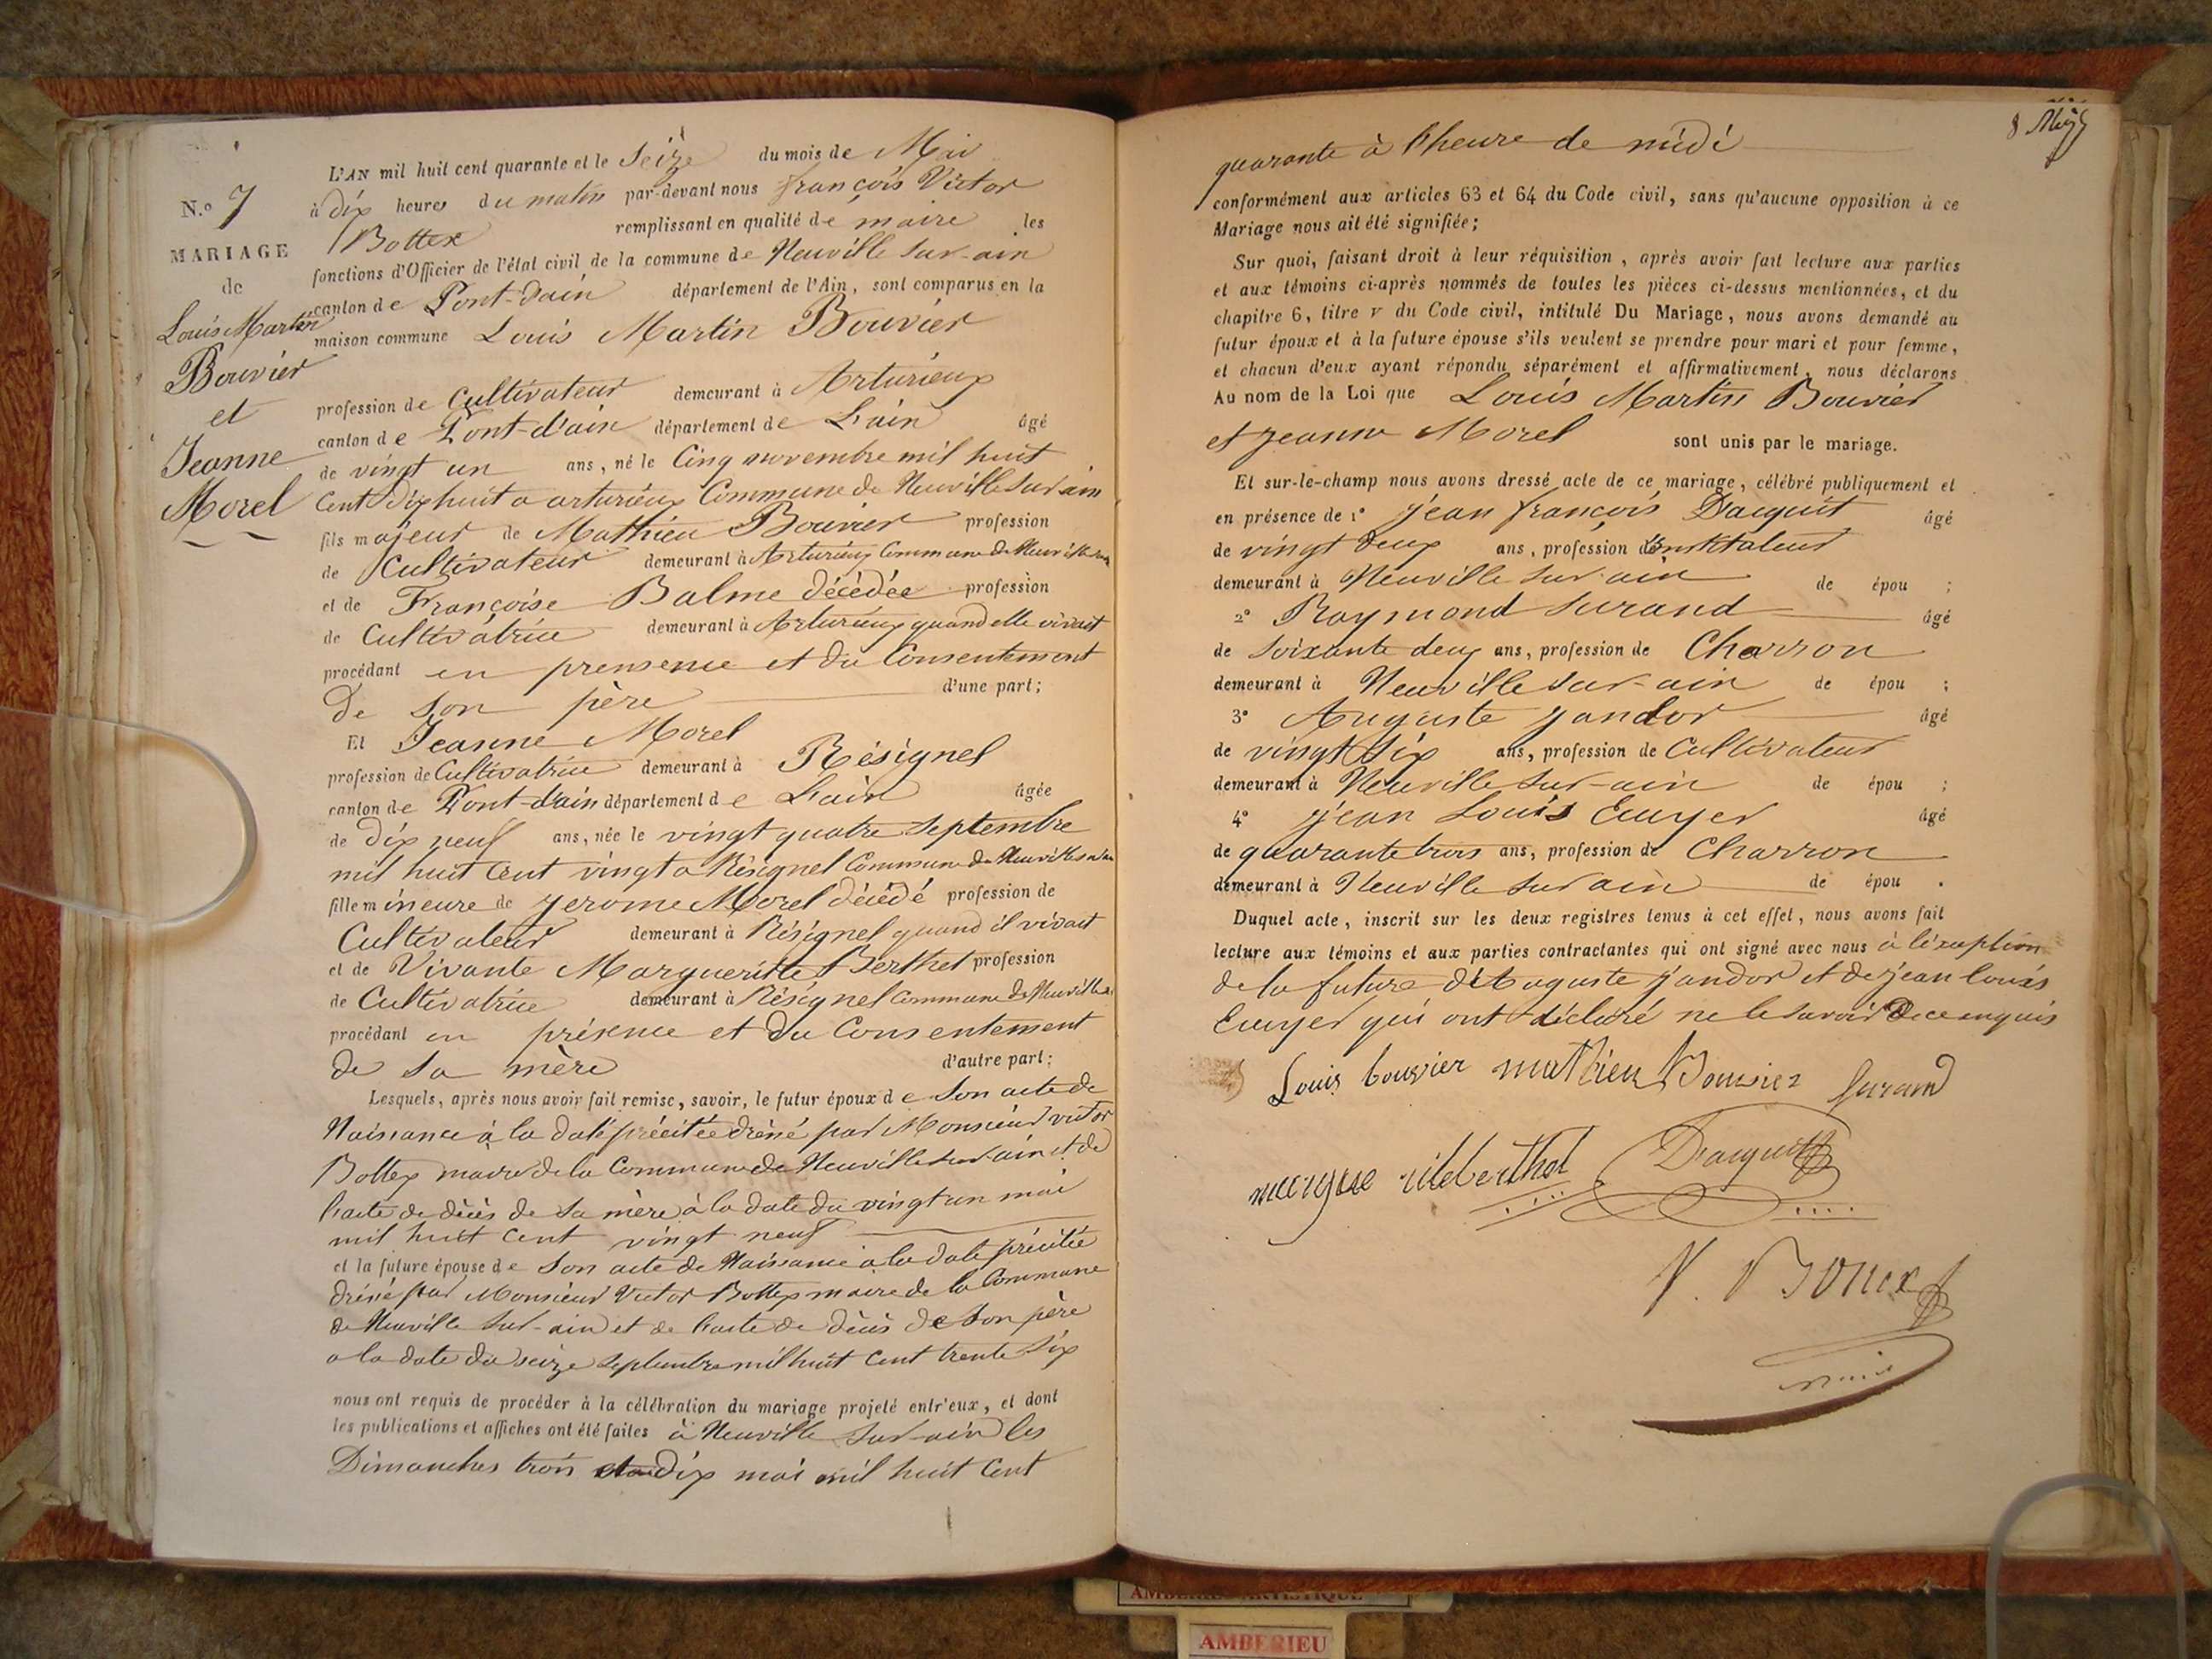 N.o 7
MARIAGE
de
Louis Martin
Bouvier
et
Jeanne
Morel
L'AN mil huit cent quarante et le Seize du mois de Mai
à dix heures du matin par-devant nous françois Victor
Bottex remplissant en qualité de maire les
fonctions d'Officier de l'état civil de la commune de Neuville sur-ain
canton de Pont-d'ain département de l'Ain, sont comparus en la
maison commune Louis Martin Bouvier
profession de Cultivateur demeurant à Arturieux
canton de Pont-d'ain département de L'ain âgé
de vingt un ans, né le Cinq novembre mil huit
Cent dix huit a arturieux Commune de Neuville sur ain
fils majeur de Mathieu Bouvier profession
de Cultivateur demeurant à Arturieux Commune de Neuville sur ain
et de Françoise Balme décédée profession
de Cultivatrice demeurant à Arturieux quand elle vivait
procédant en prensence et du Consentement
de son père d'une part;
Et Jeanne Morel
profession de Cultivatrice demeurant à Résignel
canton de Pont-d'ain département de L'ain âgée
de dix neuf ans, née le vingt quatre Septembre
mil huit Cent vingt a Résignel Commune de Neuville sur ain
fille mineure de jerome Morel décédé profession de
Cultivateur demeurant à Résignel quand il vivait
et de Vivante Margueritte Berthet profession
de Cultivatrice demeurant à Résignel Commune de Neuville
procédant en présence et du Consentement
de sa mère d'autre part;
Lesquels, après nous avoir fait remise, savoir, le futur époux de Son acte de
Naissance à la date précitée dréssé par Monsieur victor
Bottex maire de la Commune de Neuville sur-ain et de
l'acte de décès de sa mère à la date du vingt un mai
mil huit Cent vingt neuf
et la future épouse de Son acte de Naissance a la date précitée
dréssé par Monsieur Victor Bottex maire de la Commune
de Neuville sur-ain et de l'acte de décès de Son père
a la date du seize septembre mil huit Cent trente Six
nous ont requis de procéder à la célébration du mariage projeté entr'eux, et dont
les publications et affiches ont été faites à Neuville sur-ain les
Dimanches trois et dix mai mil huit Cent
quarante à l'heure de midi
conformément aux articles 63 et 64 du Code civil, sans qu'aucune opposition à ce
Mariage nous ait été signifiée;
Sur quoi, faisant droit à leur réquisition, après avoir fait lecture aux parties
et aux témoins ci-après nommés de toutes les pièces ci-dessus mentionnées, et du
chapitre 6, titre v du Code civil, intitulé Du Mariage, nous avons demandé au
futur époux et à la future épouse s'ils veulent se prendre pour mari et pour femme,
et chacun d'eux ayant répondu séparément et affirmativement, nous déclarons
Au nom de la Loi que Louis Martin Bouvier
et jeanne Morel sont unis par le mariage.
Et sur-le-champ nous avons dressé acte de ce mariage, célébré publiquement et
en présence de 1° jean françois Dacquit âgé
de vingt deux ans, profession d'instituteur
demeurant à Neuville sur-ain de épou ;
2° Raymond Surand âgé
de soixante deux ans, profession de Charron
demeurant à Neuville sur-ain de épou ;
3° Auguste jandor âgé
de vingt Six ans, profession de Cultivateur
demeurant à Neuville sur-ain de épou ;
4° jean Louis Ecuyer âgé
de quarante trois ans, profession de Charron
demeurant à Neuville sur ain de épou .
Duquel acte, inscrit sur les deux registres tenus à cet effet, nous avons fait
lecture aux témoins et aux parties contractantes qui ont signé avec nous à l'éxeption
de la future d'Auguste jandor et de jean louis
Ecuyer qui ont déclaré ne le savoir de ce enquis
Louis bouvier mathieu Bouvier Surand
Dacquit
V. Bottex
AMBERIEU